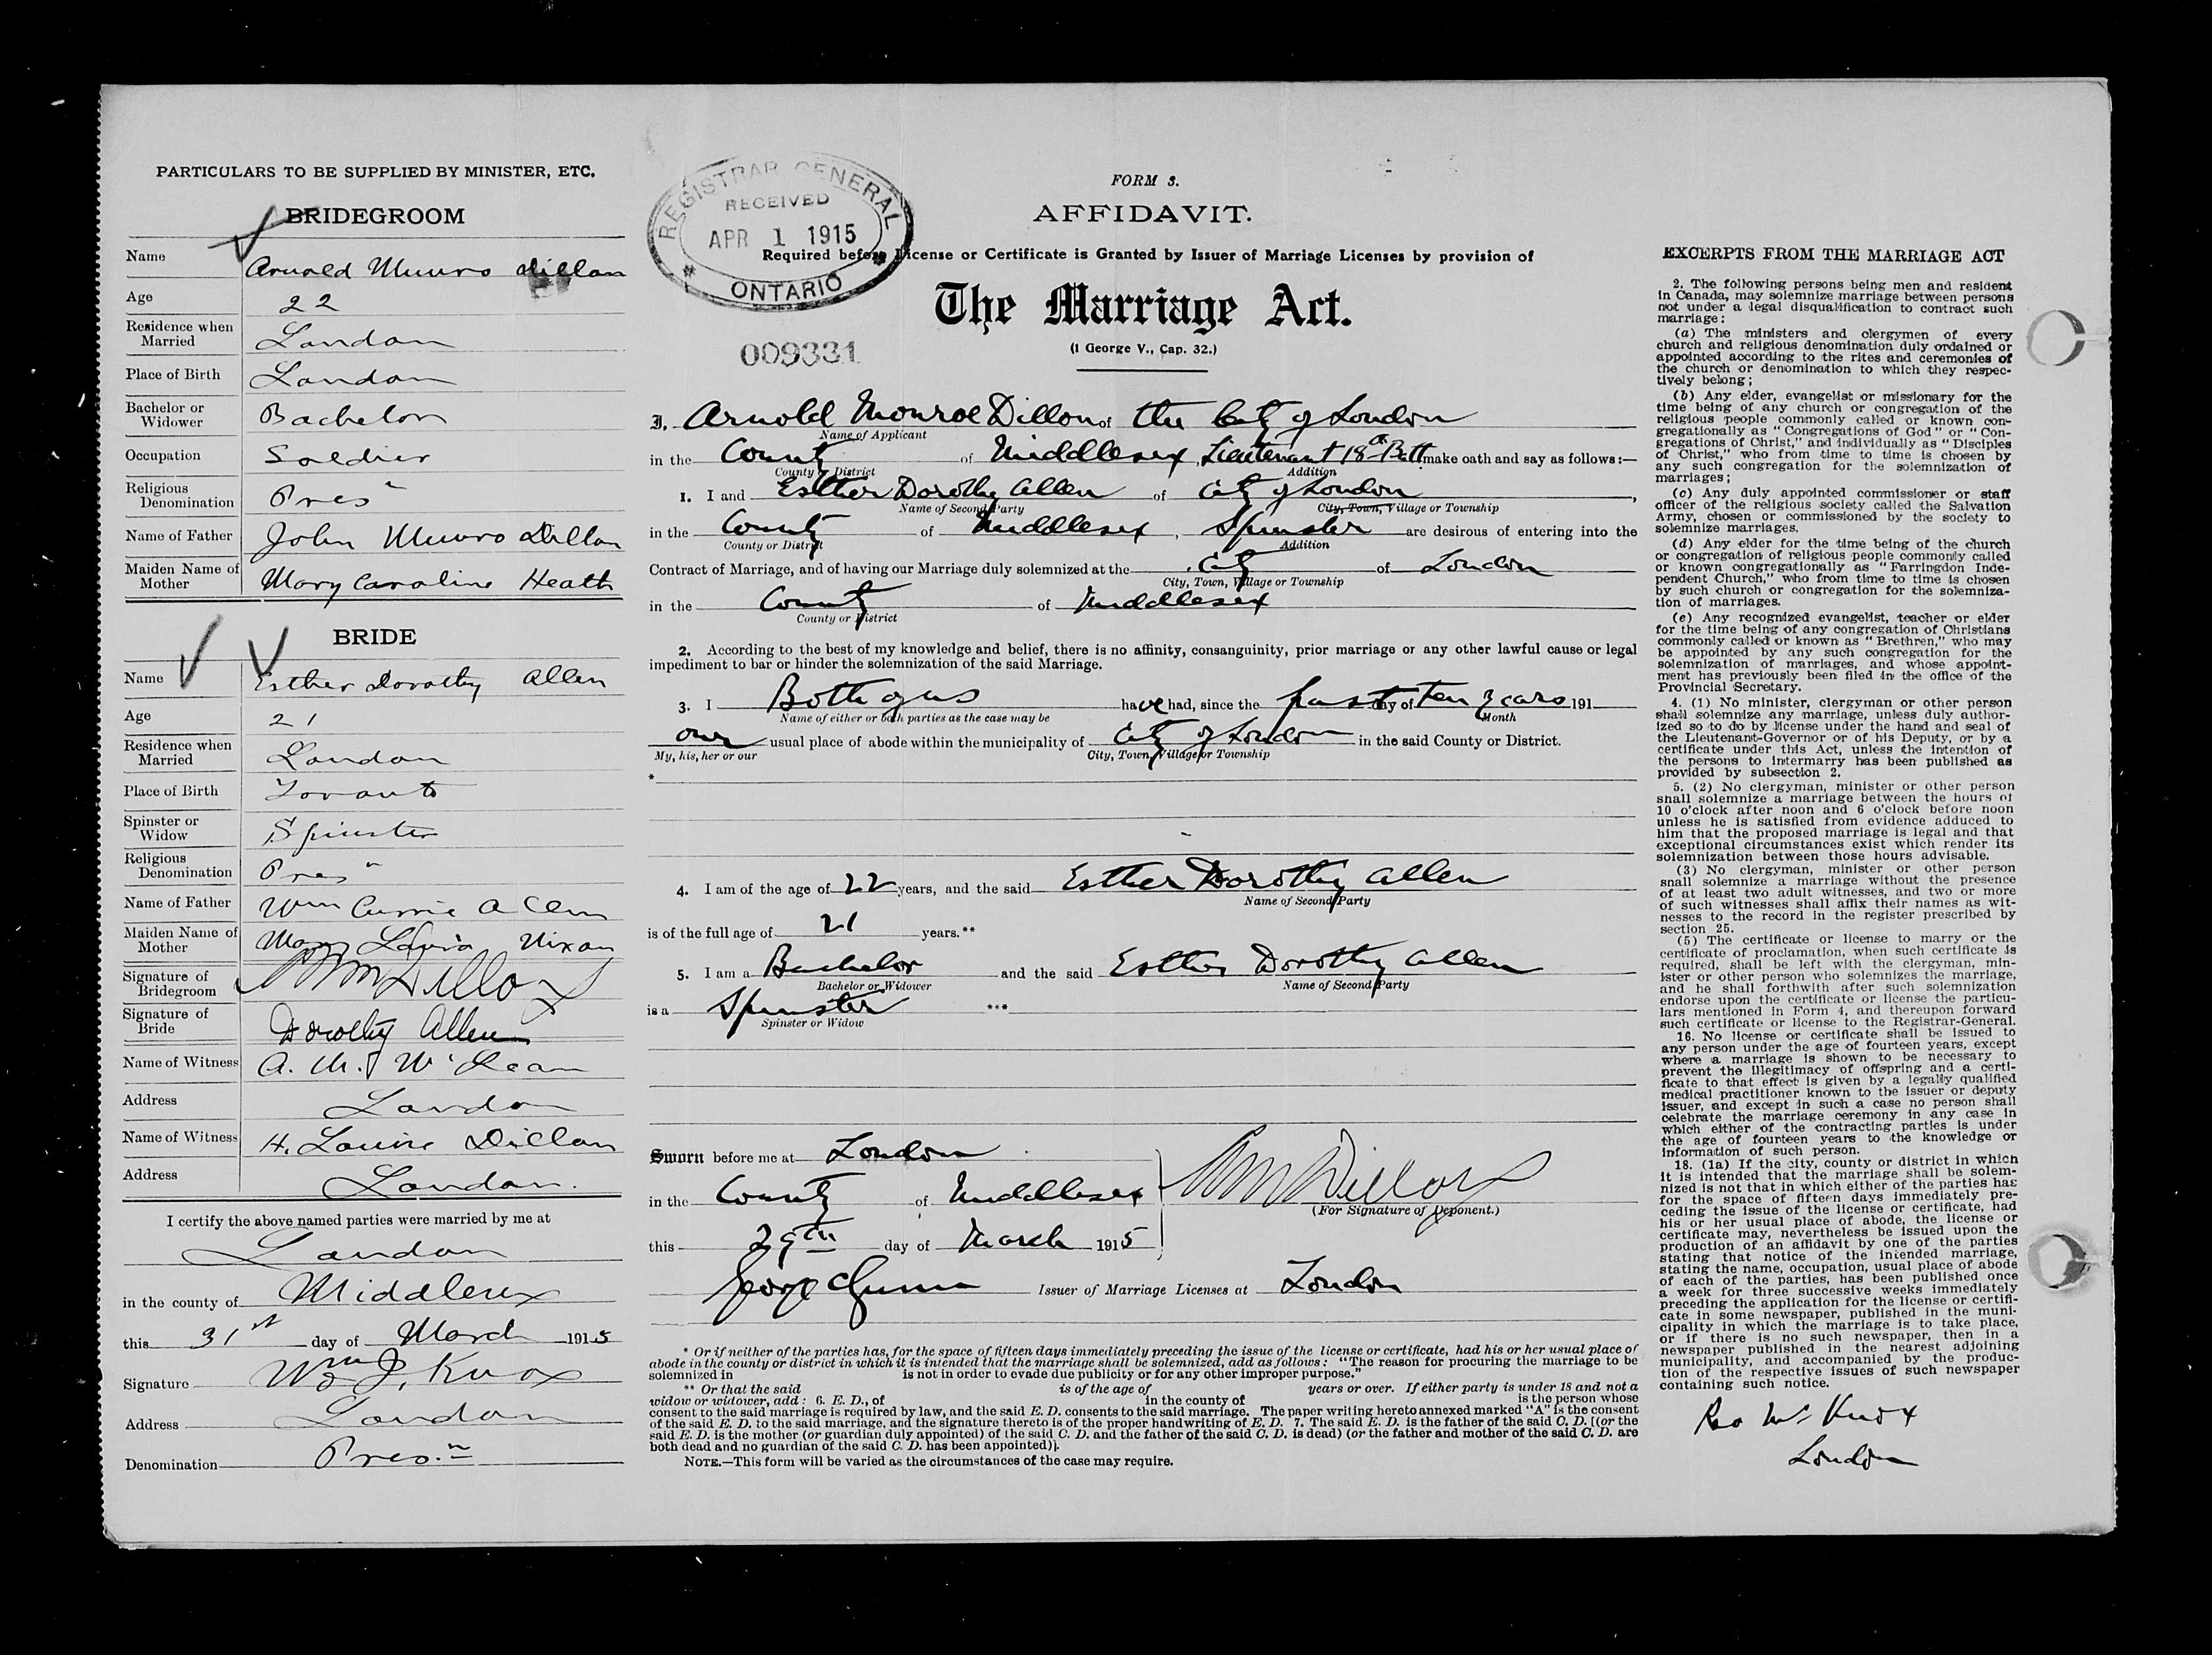 PARTICULARS TO BE SUPPLIED BY MINISTER, ETC.
BRIDEGROOM
Name Arnold Munro Dillon
Age 22
Residence when Married London
Place of Birth London
Bachelor or Widower Bachelor
Occupation Soldier
Religious Denomination Presn
Name of Father John Munro Dillon
Maiden Name of Mother Mary Caroline Heath
BRIDE
Name Esther Dorothy Allen
Age 21
Residence when Married London
Place of Birth Toronto
Spinster or Widow Spinster
Religious Denomination Presn
Name of Father Wm Currie Allen
Maiden Name of Mother Mary Nixon
Signature of Bridegroom AMDillon
Signature of Bride Dorothy Allen
Name of Witness A. M. McLean
Address London
Name of Witness H. Louise Dillon
Address London.
I certify the above named parties were married by me at
London
in the county of Middlesex
this 31st day of March 1915
Signature Wm J. Knox
Address London
Denomination Pres.n
REGISTRAR GENERAL
RECEIVED
APR 1 1915
ONTARIO
009331
FORM 3.
AFFIDAVIT.
Required before License or Certificate is Granted by Issuer of Marriage Licenses by provision of
The Marriage Act.
(1 George V., Cap. 32.)
I, Arnold Monroe Dillon of the City of London
Name of Applicant
in the County of Middlesex, Lieutenant 18th Batt make oath and say as follows:—
County or District Addition
1. I and Esther Dorothy Allen of City of London,
Name of Second Party City, Town, Village or Township
in the County of Middlesex, Spinster are desirous of entering into the
County or District Addition
Contract of Marriage, and of having our Marriage duly solemnized at the City of London
City, Town, Village or Township
in the County of Middlesex
County or District
2. According to the best of my knowledge and belief, there is no affinity, consanguinity, prior marriage or any other lawful cause or legal
impediment to bar or hinder the solemnization of the said Marriage.
3. I Both of us have had, since the past day of ten years 191
Name of either or both parties as the case may be Month
our usual place of abode within the municipality of City of London in the said County or District.
My, his, her or our City, Town, Village or Township
*
4. I am of the age of 22 years, and the said Esther Dorothy Allen
Name of Second Party
is of the full age of 21 years.**
5. I am a Bachelor and the said Esther Dorothy Allen
Bachelor or Widower Name of Second Party
is a Spinster ***
Spinster or Widow
Sworn before me at London
in the County of Middlesex
AMDillon
(For Signature of Deponent.)
this 29th day of March 1915
George Gunn Issuer of Marriage Licenses at London
* Or if neither of the parties has, for the space of fifteen days immediately preceding the issue of the license or certificate, had his or her usual place of
abode in the county or district in which it is intended that the marriage shall be solemnized, add as follows: "The reason for procuring the marriage to be
solemnized in is not in order to evade due publicity or for any other improper purpose."
** Or that the said is of the age of years or over. If either party is under 18 and not a
widow or widower, add: 6. E. D., of in the county of is the person whose
consent to the said marriage is required by law, and the said E. D. consents to the said marriage. The paper writing hereto annexed marked "A" is the consent
of the said E. D. to the said marriage, and the signature thereto is of the proper handwriting of E. D. 7. The said E. D. is the father of the said C. D. [(or the
said E. D. is the mother (or guardian duly appointed) of the said C. D. and the father of the said C. D. is dead) (or the father and mother of the said C. D. are
both dead and no guardian of the said C. D. has been appointed)].
NOTE.—This form will be varied as the circumstances of the case may require.
EXCERPTS FROM THE MARRIAGE ACT
2. The following persons being men and resident
in Canada, may solemnize marriage between persons
not under a legal disqualification to contract such
marriage:
(a) The ministers and clergymen of every
church and religious denomination duly ordained or
appointed according to the rites and ceremonies of
the church or denomination to which they respec-
tively belong;
(b) Any elder, evangelist or missionary for the
time being of any church or congregation of the
religious people commonly called or known con-
gregationally as "Congregations of God" or "Con-
gregations of Christ," and individually as "Disciples
of Christ," who from time to time is chosen by
any such congregation for the solemnization of
marriages;
(c) Any duly appointed commissioner or staff
officer of the religious society called the Salvation
Army, chosen or commissioned by the society to
solemnize marriages.
(d) Any elder for the time being of the church
or congregation of religious people commonly called
or known congregationally as "Farringdon Inde-
pendent Church," who from time to time is chosen
by such church or congregation for the solemniza-
tion of marriages.
(e) Any recognized evangelist, teacher or elder
for the time being of any congregation of Christians
commonly called or known as "Brethren," who may
be appointed by any such congregation for the
solemnization of marriages, and whose appoint-
ment has previously been filed in the office of the
Provincial Secretary.
4. (1) No minister, clergyman or other person
shall solemnize any marriage, unless duly author-
ized so to do by license under the hand and seal of
the Lieutenant-Governor or of his Deputy, or by a
certificate under this Act, unless the intention of
the persons to intermarry has been published as
provided by subsection 2.
5. (2) No clergyman, minister or other person
shall solemnize a marriage between the hours of
10 o'clock after noon and 6 o'clock before noon
unless he is satisfied from evidence adduced to
him that the proposed marriage is legal and that
exceptional circumstances exist which render its
solemnization between those hours advisable.
(3) No clergyman, minister or other person
shall solemnize a marriage without the presence
of at least two adult witnesses, and two or more
of such witnesses shall affix their names as wit-
nesses to the record in the register prescribed by
section 25.
(5) The certificate or license to marry or the
certificate of proclamation, when such certificate is
required, shall be left with the clergyman, min-
ister or other person who solemnizes the marriage,
and he shall forthwith after such solemnization
endorse upon the certificate or license the particu-
lars mentioned in Form 4, and thereupon forward
such certificate or license to the Registrar-General.
16. No license or certificate shall be issued to
any person under the age of fourteen years, except
where a marriage is shown to be necessary to
prevent the illegitimacy of offspring and a certi-
ficate to that effect is given by a legally qualified
medical practitioner known to the issuer or deputy
issuer, and except in such a case no person shall
celebrate the marriage ceremony in any case in
which either of the contracting parties is under
the age of fourteen years to the knowledge or
information of such person.
18. (1a) If the city, county or district in which
it is intended that the marriage shall be solem-
nized is not that in which either of the parties has
for the space of fifteen days immediately pre-
ceding the issue of the license or certificate, had
his or her usual place of abode, the license or
certificate may, nevertheless be issued upon the
production of an affidavit by one of the parties
stating that notice of the intended marriage,
stating the name, occupation, usual place of abode
of each of the parties, has been published once
a week for three successive weeks immediately
preceding the application for the license or certifi-
cate in some newspaper, published in the muni-
cipality in which the marriage is to take place,
or if there is no such newspaper, then in a
newspaper published in the nearest adjoining
municipality, and accompanied by the produc-
tion of the respective issues of such newspaper
containing such notice.
Rev Mr Knox
London